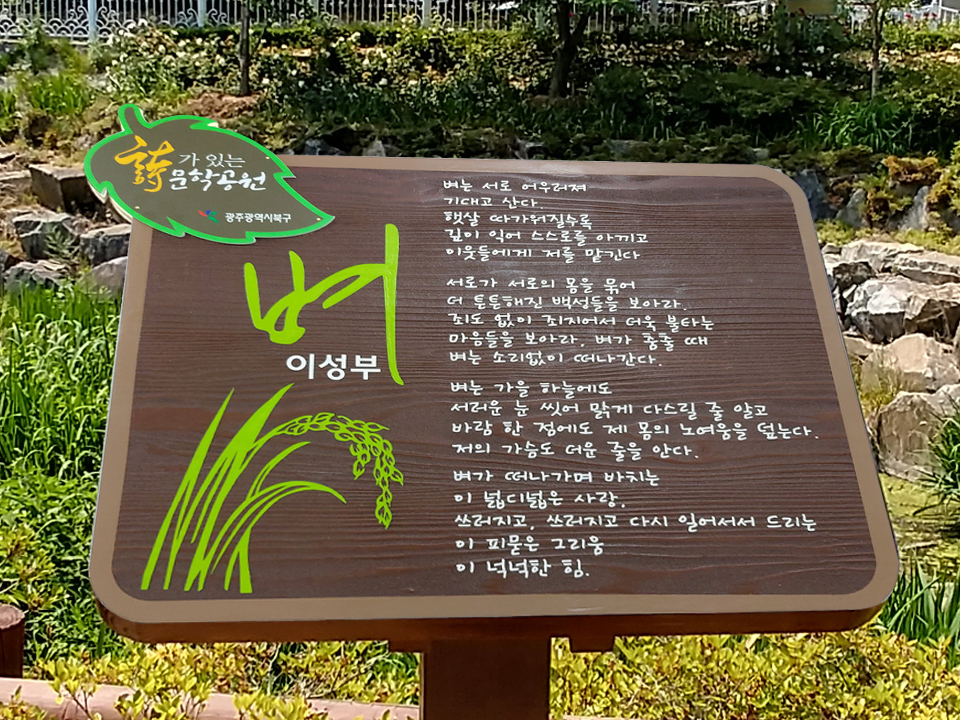 詩가 있는
문학공원
광주광역시북구
벼
이성부
벼는 서로 어우러져
기대고 산다.
햇살 따가워질수록
깊이 익어 스스로를 아끼고
이웃들에게 저를 맡긴다
서로가 서로의 몸을 묶어
더 튼튼해진 백성들을 보아라.
죄도 없이 죄지어서 더욱 불타는
마음들을 보아라, 벼가 춤출 때
벼는 소리없이 떠나간다.
벼는 가을 하늘에도
서러운 눈 씻어 맑게 다스릴 줄 알고
바람 한 점에도 제 몸의 노여움을 덮는다.
저의 가슴도 더운 줄을 안다.
벼가 떠나가며 바치는
이 넓디넓은 사랑,
쓰러지고, 쓰러지고 다시 일어서서 드리는
이 피묻은 그리움
이 넉넉한 힘.